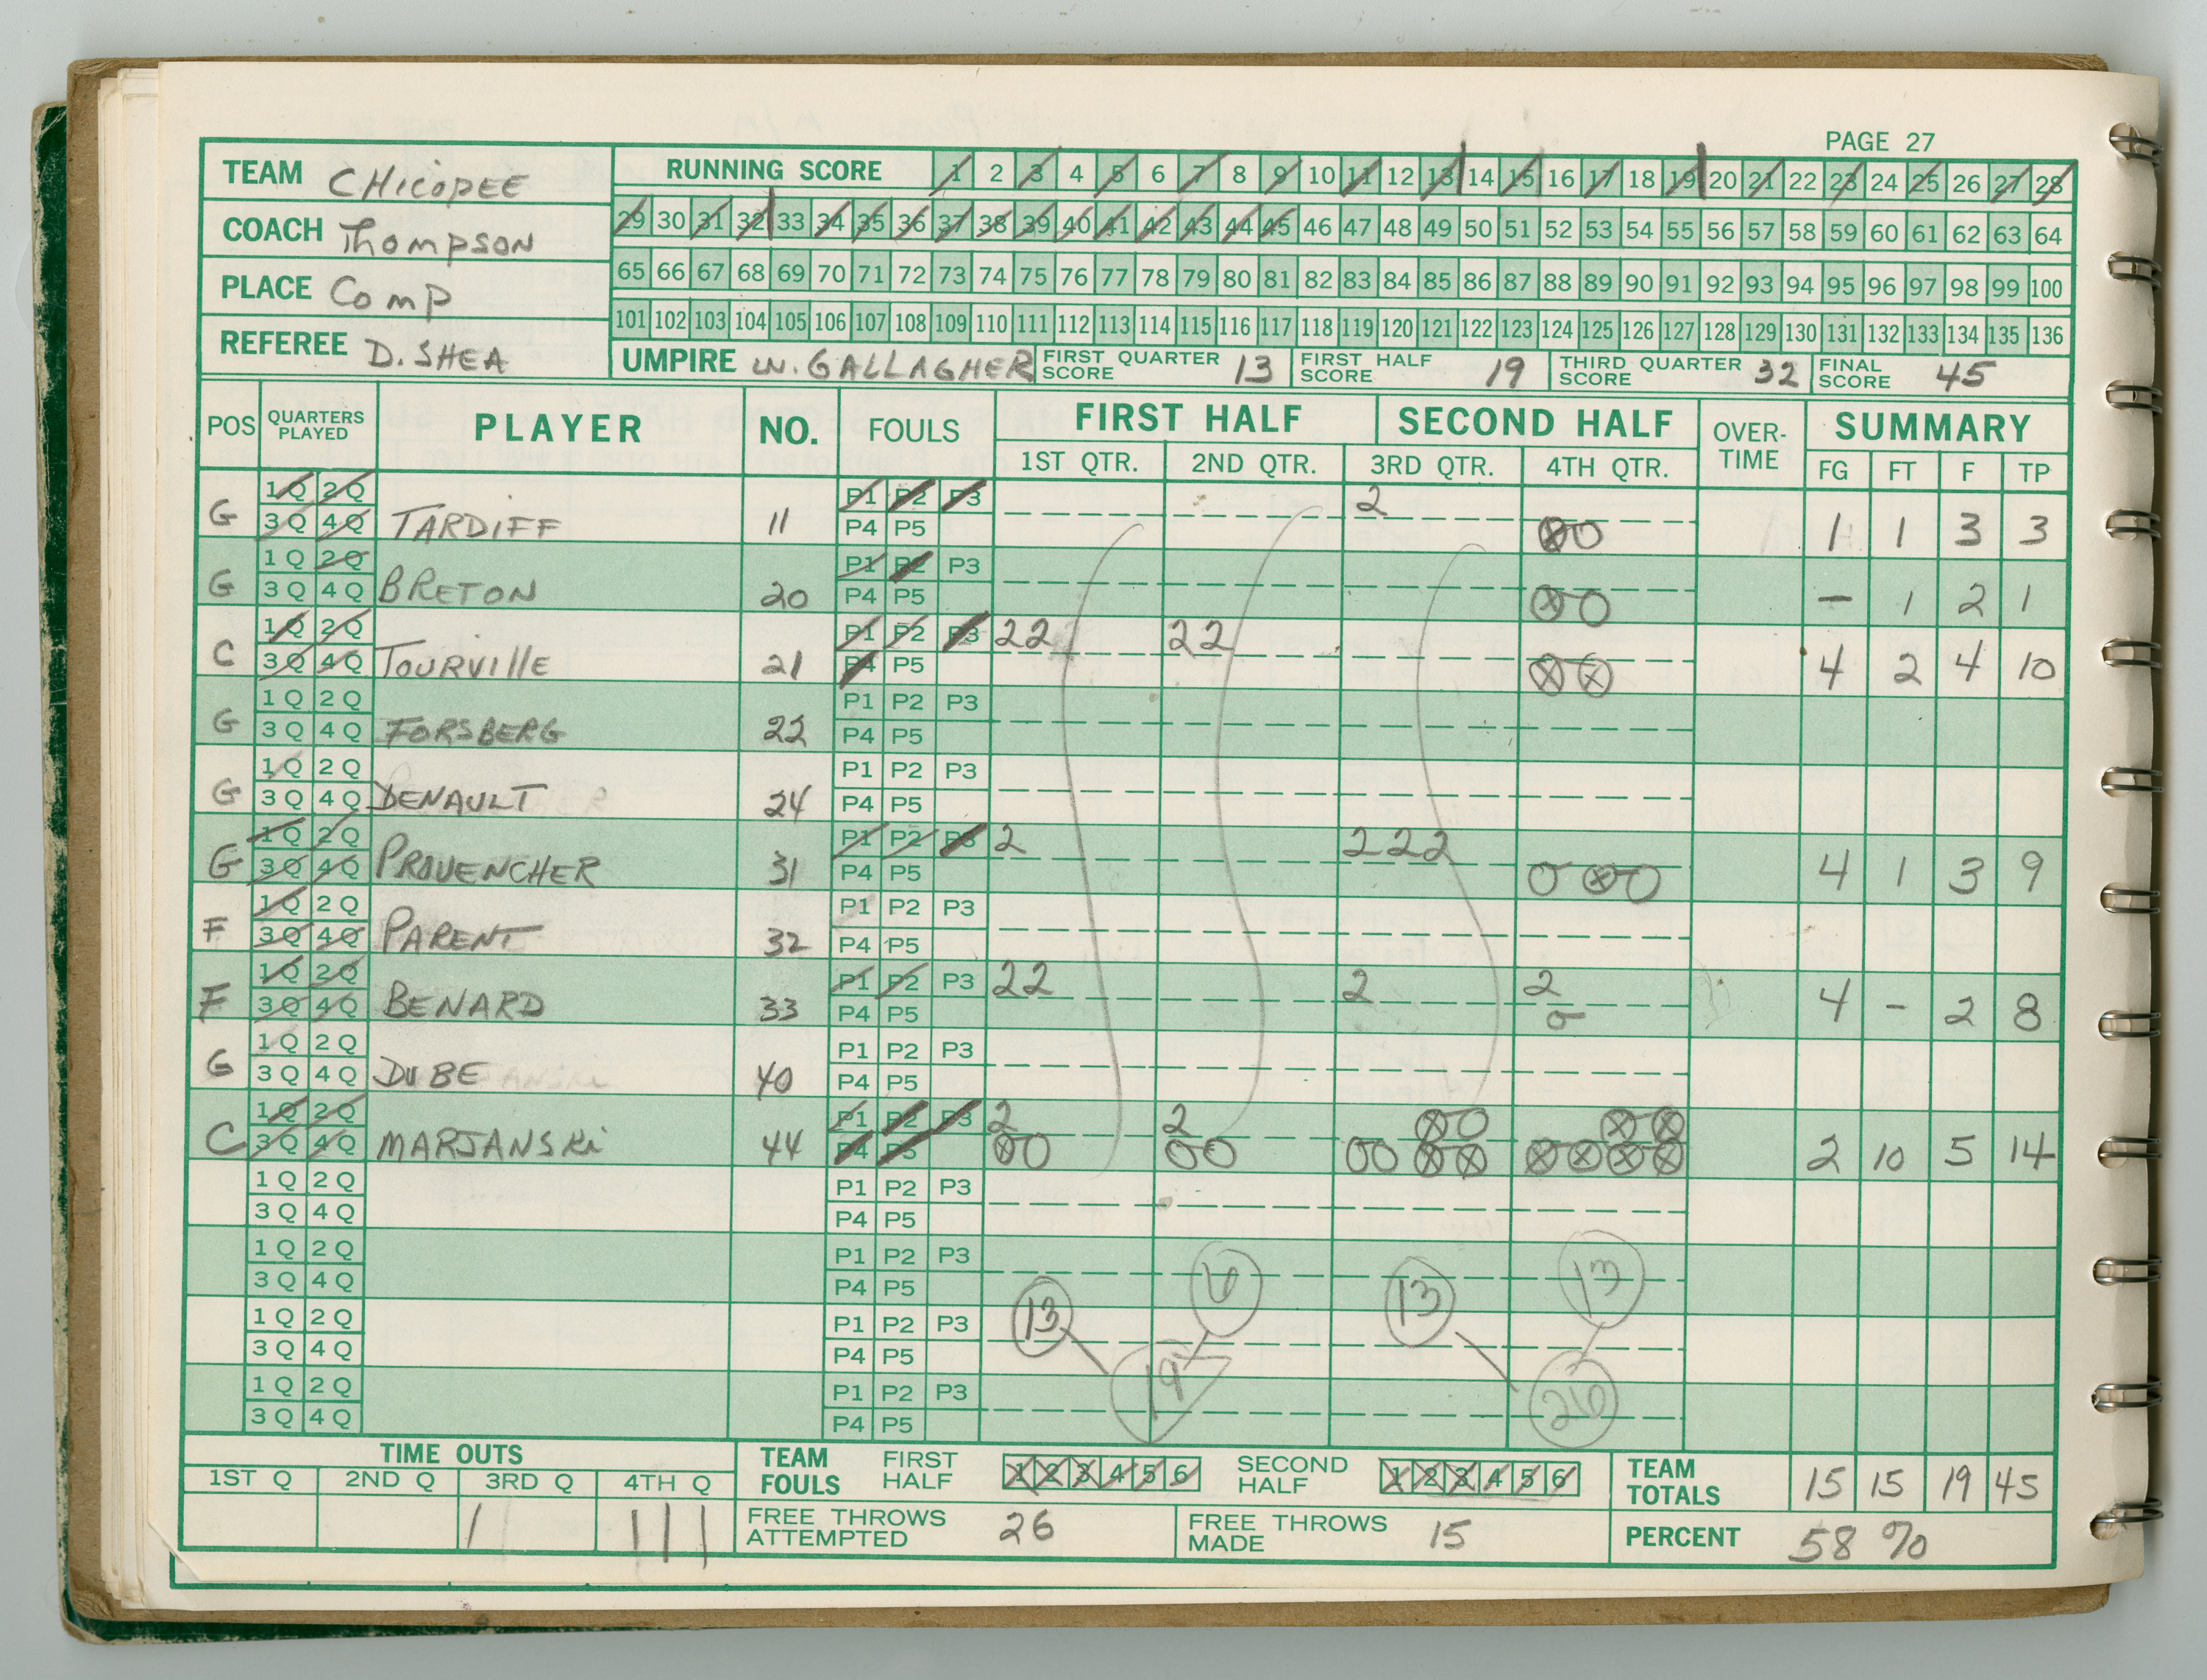 PAGE 27
TEAM CHICOPEE
RUNNING SCORE 1 2 3 4 5 6 7 8 9 10 11 12 13 14 15 16 17 18 19 20 21 22 23 24 25 26 27 28
COACH Thompson
29 30 31 32 33 34 35 36 37 38 39 40 41 42 43 44 45 46 47 48 49 50 51 52 53 54 55 56 57 58 59 60 61 62 63 64
PLACE Comp
65 66 67 68 69 70 71 72 73 74 75 76 77 78 79 80 81 82 83 84 85 86 87 88 89 90 91 92 93 94 95 96 97 98 99 100
101 102 103 104 105 106 107 108 109 110 111 112 113 114 115 116 117 118 119 120 121 122 123 124 125 126 127 128 129 130 131 132 133 134 135 136
REFEREE D. SHEA
UMPIRE W. GALLAGHER FIRST QUARTER SCORE 13 FIRST HALF SCORE 19 THIRD QUARTER SCORE 32 FINAL SCORE 45
POS QUARTERS PLAYED PLAYER NO. FOULS FIRST HALF SECOND HALF OVER-TIME SUMMARY
1ST QTR. 2ND QTR. 3RD QTR. 4TH QTR. FG FT F TP
1Q 2Q P1 P2 P3 2
G 3Q 4Q TARDIFF 11 P4 P5 ⊗O 1 1 3 3
1Q 2Q P1 P2 P3
G 3Q 4Q BRETON 20 P4 P5 ⊗O – 1 2 1
1Q 2Q P1 P2 P3 22 22
C 3Q 4Q TOURVIllE 21 P4 P5 ⊗⊗ 4 2 4 10
1Q 2Q P1 P2 P3
G 3Q 4Q FORSBERG 22 P4 P5
1Q 2Q P1 P2 P3
G 3Q 4Q DENAULT 24 P4 P5
1Q 2Q P1 P2 P3 2 222
G 3Q 4Q PROVENCHER 31 P4 P5 O⊗O 4 1 3 9
1Q 2Q P1 P2 P3
F 3Q 4Q PARENT 32 P4 P5
1Q 2Q P1 P2 P3 22 2 2
F 3Q 4Q BENARD 33 P4 P5 O 4 - 2 8
1Q 2Q P1 P2 P3
G 3Q 4Q DUBE 40 P4 P5
1Q 2Q P1 P2 P3 2 2 ⊗O ⊗⊗
C 3Q 4Q MARJANSKi 44 P4 P5 ⊗O OO OO⊗⊗ ⊗⊗⊗⊗ 2 10 5 14
1Q 2Q P1 P2 P3
3Q 4Q P4 P5
1Q 2Q P1 P2 P3
3Q 4Q P4 P5 6 13 13
1Q 2Q P1 P2 P3 13
3Q 4Q P4 P5
1Q 2Q P1 P2 P3 19 26
3Q 4Q P4 P5
TIME OUTS TEAM FOULS FIRST HALF 1 2 3 4 5 6 SECOND HALF 1 2 3 4 5 6 TEAM TOTALS 15 15 19 45
1ST Q 2ND Q 3RD Q 4TH Q
| ||| FREE THROWS ATTEMPTED 26 FREE THROWS MADE 15 PERCENT 58 %